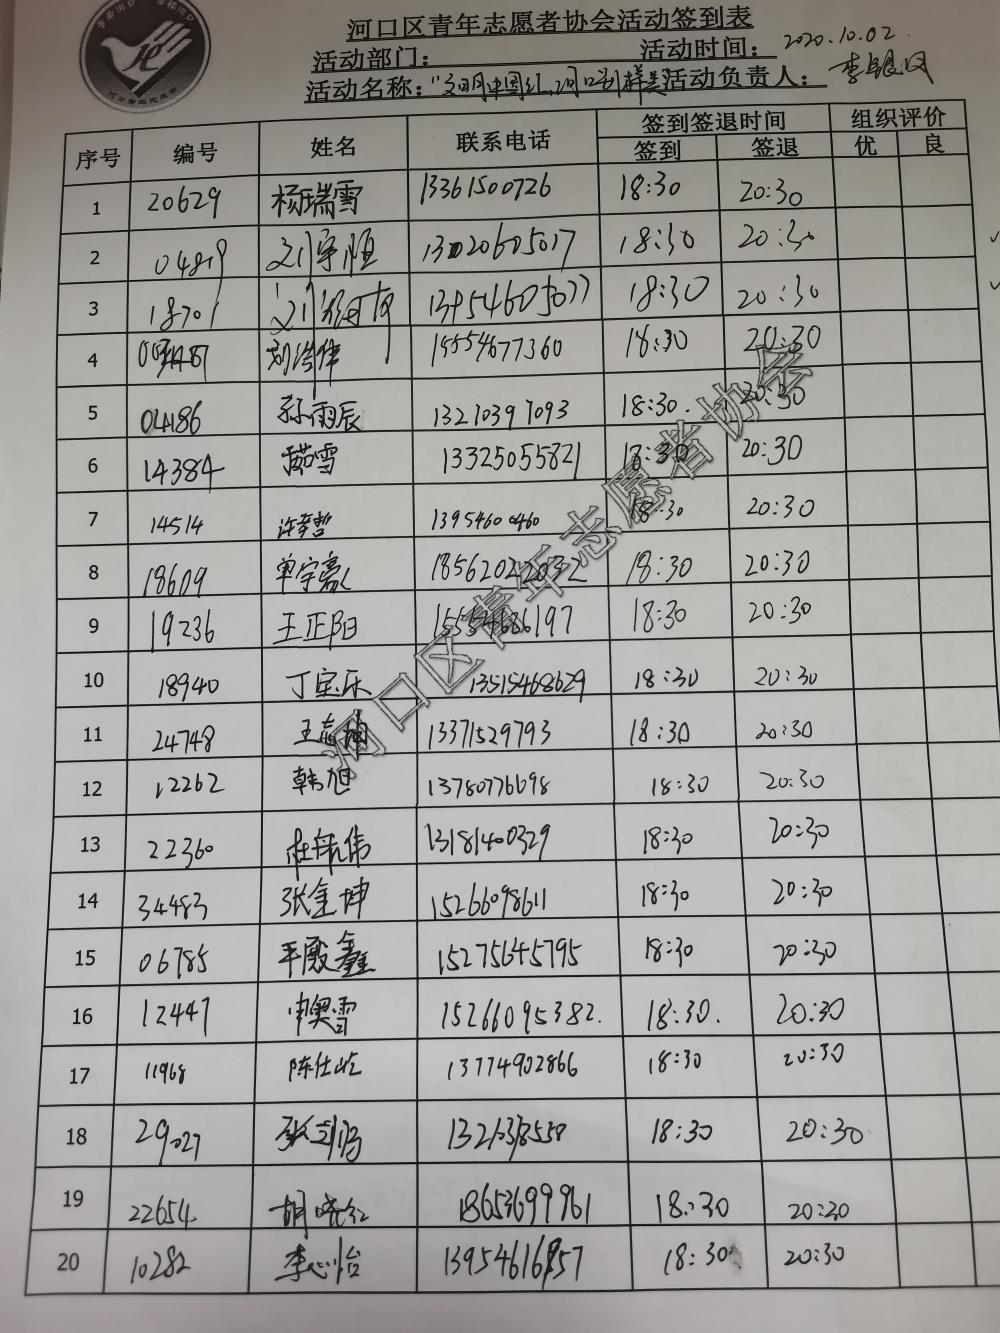 河口区青年志愿者协会活动签到表
活动部门： 活动时间： 2020.10.02.
活动名称： 活动负责人：
序号 编号 姓名 联系电话 签到签退时间 组织评价
签到 签退 优 良
1 20629 杨瑞雪 13361500726 18:30 20:30
2 04819 刘宇恒 13020605017 18:30 20:30
3 18701 18:30 20:30
4 刘浩伟 15554677360 18:30 20:30
5 04186 孙雨辰 13210397093 18:30. 20:30
6 14384 茹雪 13325055821 18:30 20:30
7 14514 许孝哲 13954600460 18:30 20:30
8 18609 单宇豪 18562022032 18:30 20:30
9 19236 王正阳 15554686197 18:30 20:30
10 18940 丁宝乐 13515468629 18:30 20:30
11 24748 13371529793 18:30 20:30
12 12262 韩旭 13780776698 18:30 20:30
13 22360 杜航伟 13181400329 18:30 20:30
14 34483 张金坤 15266098611 18:30 20:30
15 06785 15275645795 18:30 20:30
16 12447 申奥雪 15266095382. 18:30. 20:30
17 11968 陈仕屹 13774902866 18:30 20:30
18 29027 18:30 20:30
19 22654. 胡晓红 18653699961 18:30 20:30
20 10282 李心怡 13954616857 18:30 20:30
河口区青年志愿者协会